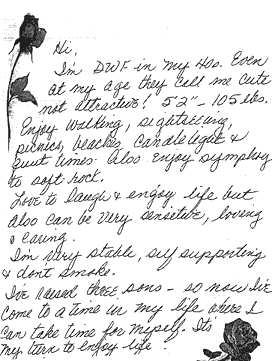 Hi,
I'm DWF in my 40s. Even
at my age they call me cute
not attractive! 5'2" - 105 lbs.
Enjoy walking, sightseeing,
picnics, beaches, candlelight &
quiet times. Also enjoy symphony
to soft rock.
Love to laugh & enjoy life but
also can be very sensitive, loving
& caring.
I'm very stable, self supporting
& dont smoke.
I've raised three sons - so now I've
come to a time in my life where I
can take time for myself. It's
my turn to enjoy life!